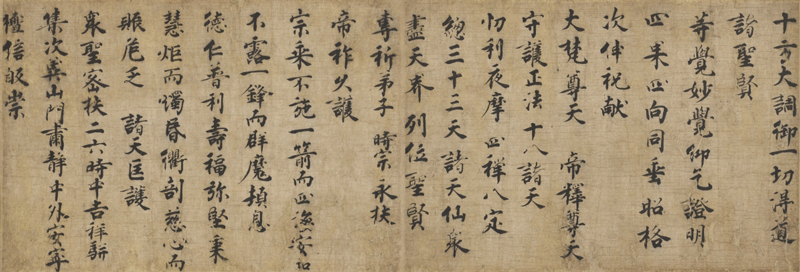 十方大調御一切得道
諸聖賢
等覺妙覺仰乞證明
四果四向同垂昭格
次伸祝献
大梵尊天 帝釋尊天
守護正法 十八諸天
忉利夜摩 四禅八定
總三十三天諸天仙衆
盡天界列位聖賢
專祈弟子 時宗永扶
帝祚久護
宗乘不施一箭而四海安和
不露一鋒而群魔頓息
德仁普利壽福弥堅秉
慧炬而燭昏衢剖慈心而
賑危乏 諸天匡護
衆聖密扶二六時中吉祥駢
集次冀山門肅静中外安寧
檀信皈崇